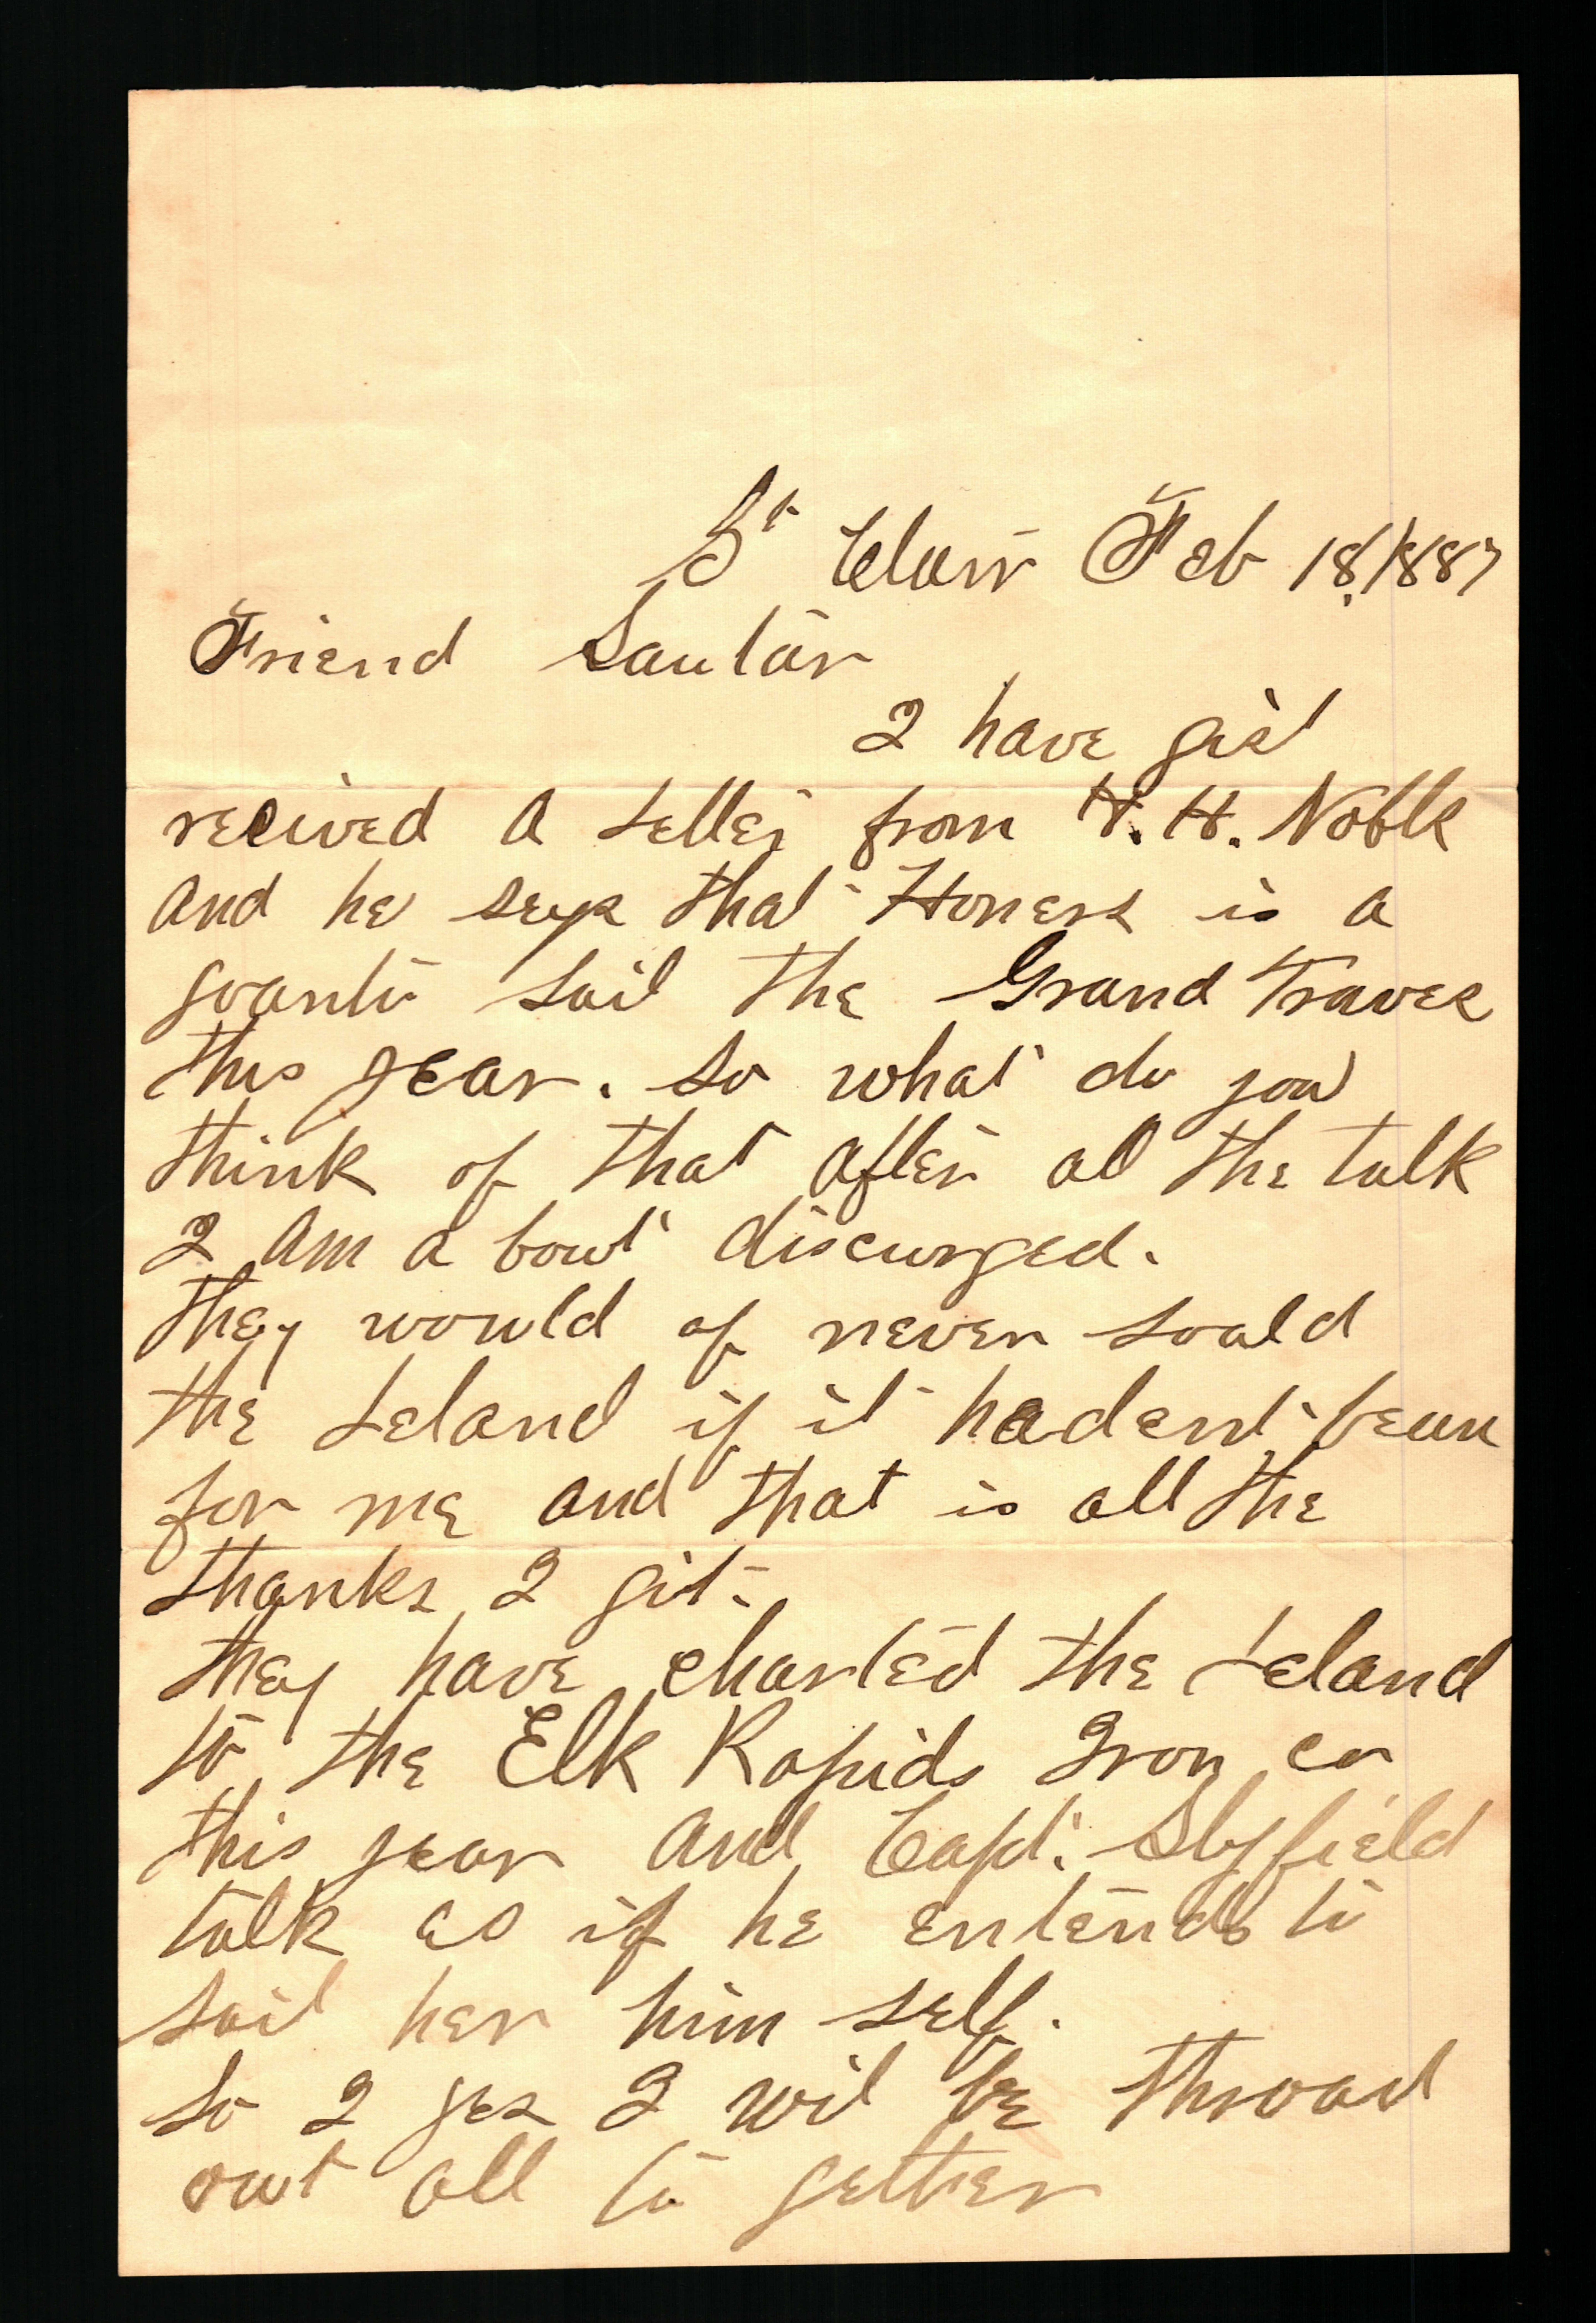 St Clair Feb 18, 1887
Friend Sautar
I have gist
recived a Letter from H. H. Noble
and he seys that Honers is a
goanto Sail the Grand Traves
this year. So what do you
think of that after al the talk
I am a bowt discurged.
they would of never soald
the Leland if it hadent bean
for me and that is all the
thanks I git.
they have charted the Leland
to the Elk Rapids Iron co
this year and Capt. Slyfield
talk as if he entends to
sail her him self.
So I ges I wil be throad
owt all to gether